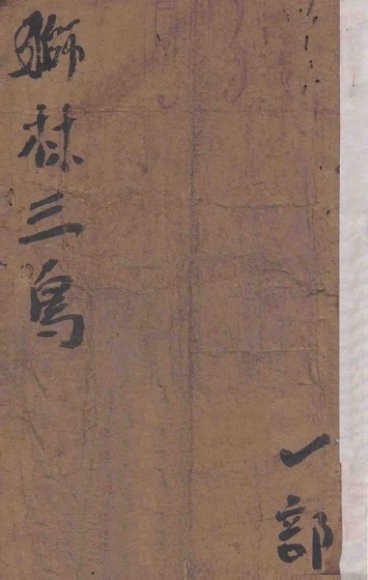 獅林三鳥
一部